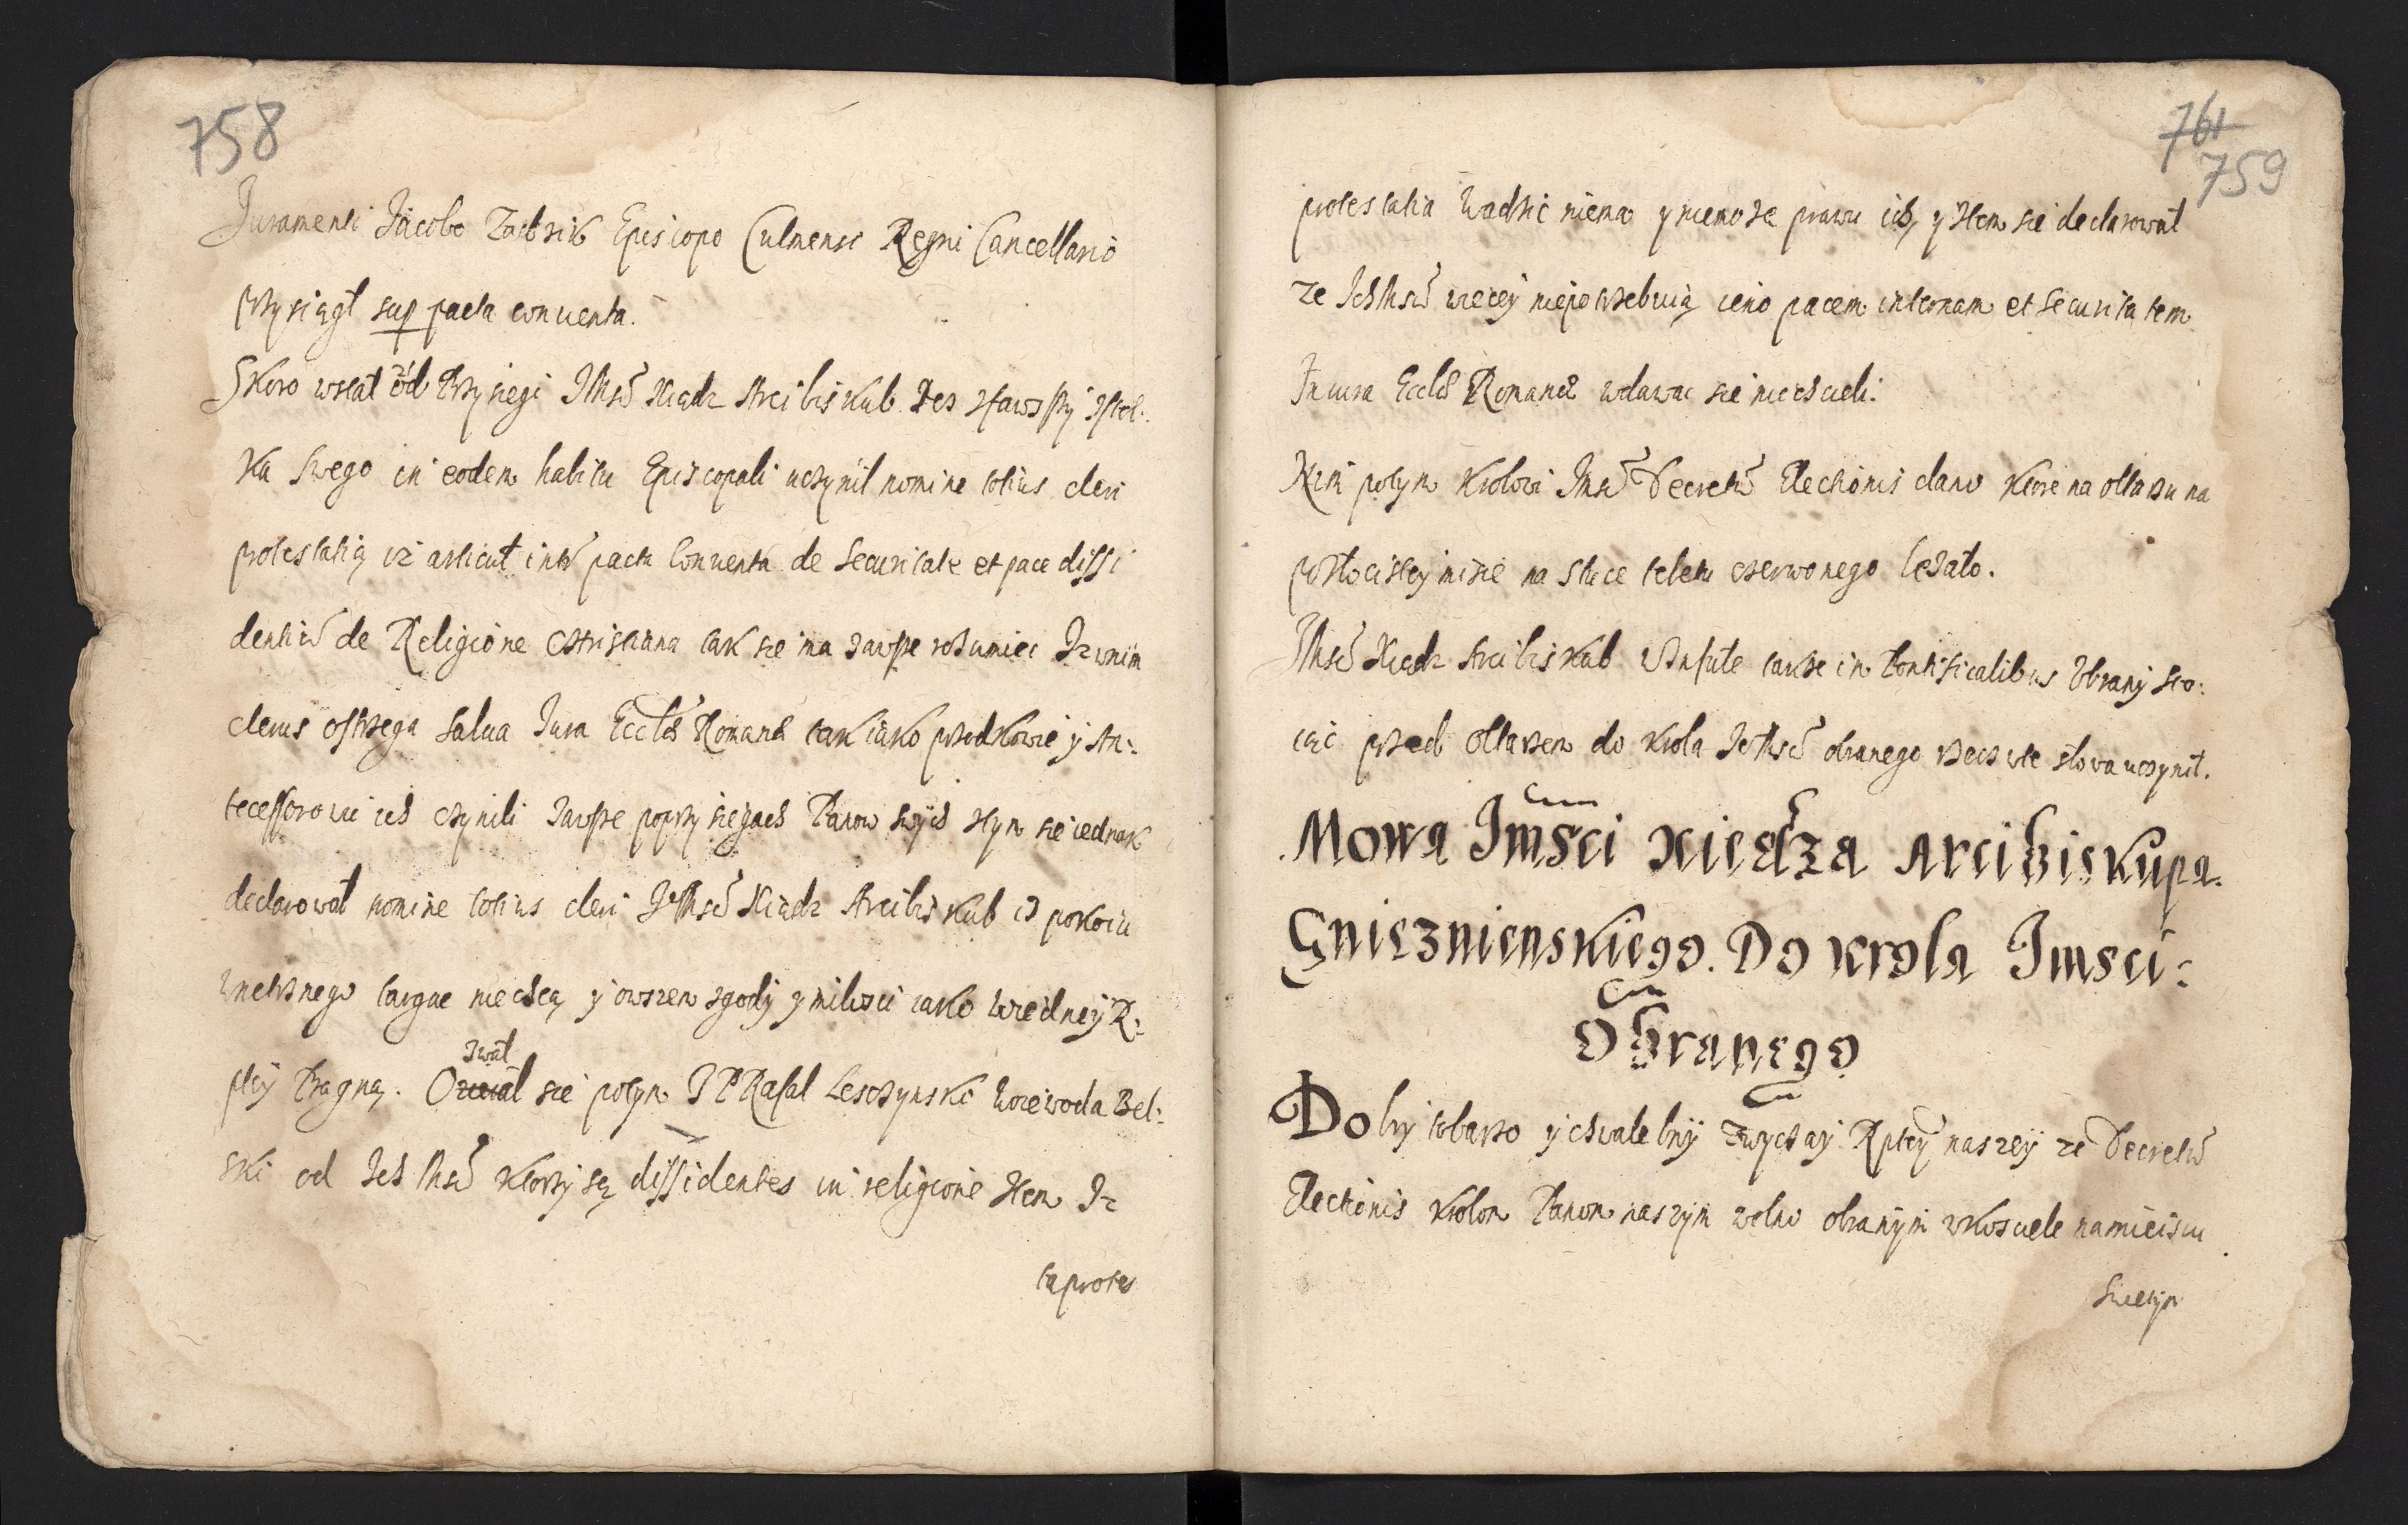 758
Juramenti Jacobo Zadzik Episcopo Culmensi Regni Cancellario
przysiągł sup pacta conventa.
Skoro wstał od Przysiegi JMsć Xiądz Arcibiskub
ka swego in eodem habitu Episcopali uczynil nomine totius cleri
protestatią iż articuł intr pacta Conventa de Securitate et pace dissi
dentiũ de Religione Christiana tak sie ma zawsze rozumiec Iz wnim
clerus ostrzega salva Jura Eccłae Romanae tak iako przodkowie y An:
tecessorowie ich czynili zawsze poprzysiegach Panow swych stym sie iednak
declarował nomine totius cleri JeMsć Xiądz Arcibiskub iz pokoiu
wnetrznego targac niechcą y owszem zgody y milosci iako wiednej R:
pltey Pragną. Ozwał sie potym J P Rafal Lesczynski Woiewoda Bel:
ski od Ich Msć ktorzy są dissidentes in religione stem Iz
ta protes
761
759
protestatia wadzic niema y niemoze prawu ich, y stem sie declarowal
ze IchMsć wiecey niepotrzebuią ieno pacem internam et securitatem
In iura Eccłae Romanae wdawac sie niechcieli.
Krol potym Krolowi Jmsć Decretũ Electionis dano ktore na ołtarzu na
pozłocistey misie na sztuce teletu czerwonego lezało.
JMsć Xiądz Arcibiskub winfule takze in Pontificalibus Vbrany sto:
iąc przed ołtarzem do krola JeMsć obranego rzecz w te słowa uczynił.
Mowa Jmsci Xiedza Arcibiskupa
Gnieznienskiego. Do Krola Jmsci:
Obranego
Dobry to barzo y chwalebny zwyczay Rptey naszey ze Decretũ
Electionis krolom Panom naszym wolno obranym wkosciele namieiscu
Swietym